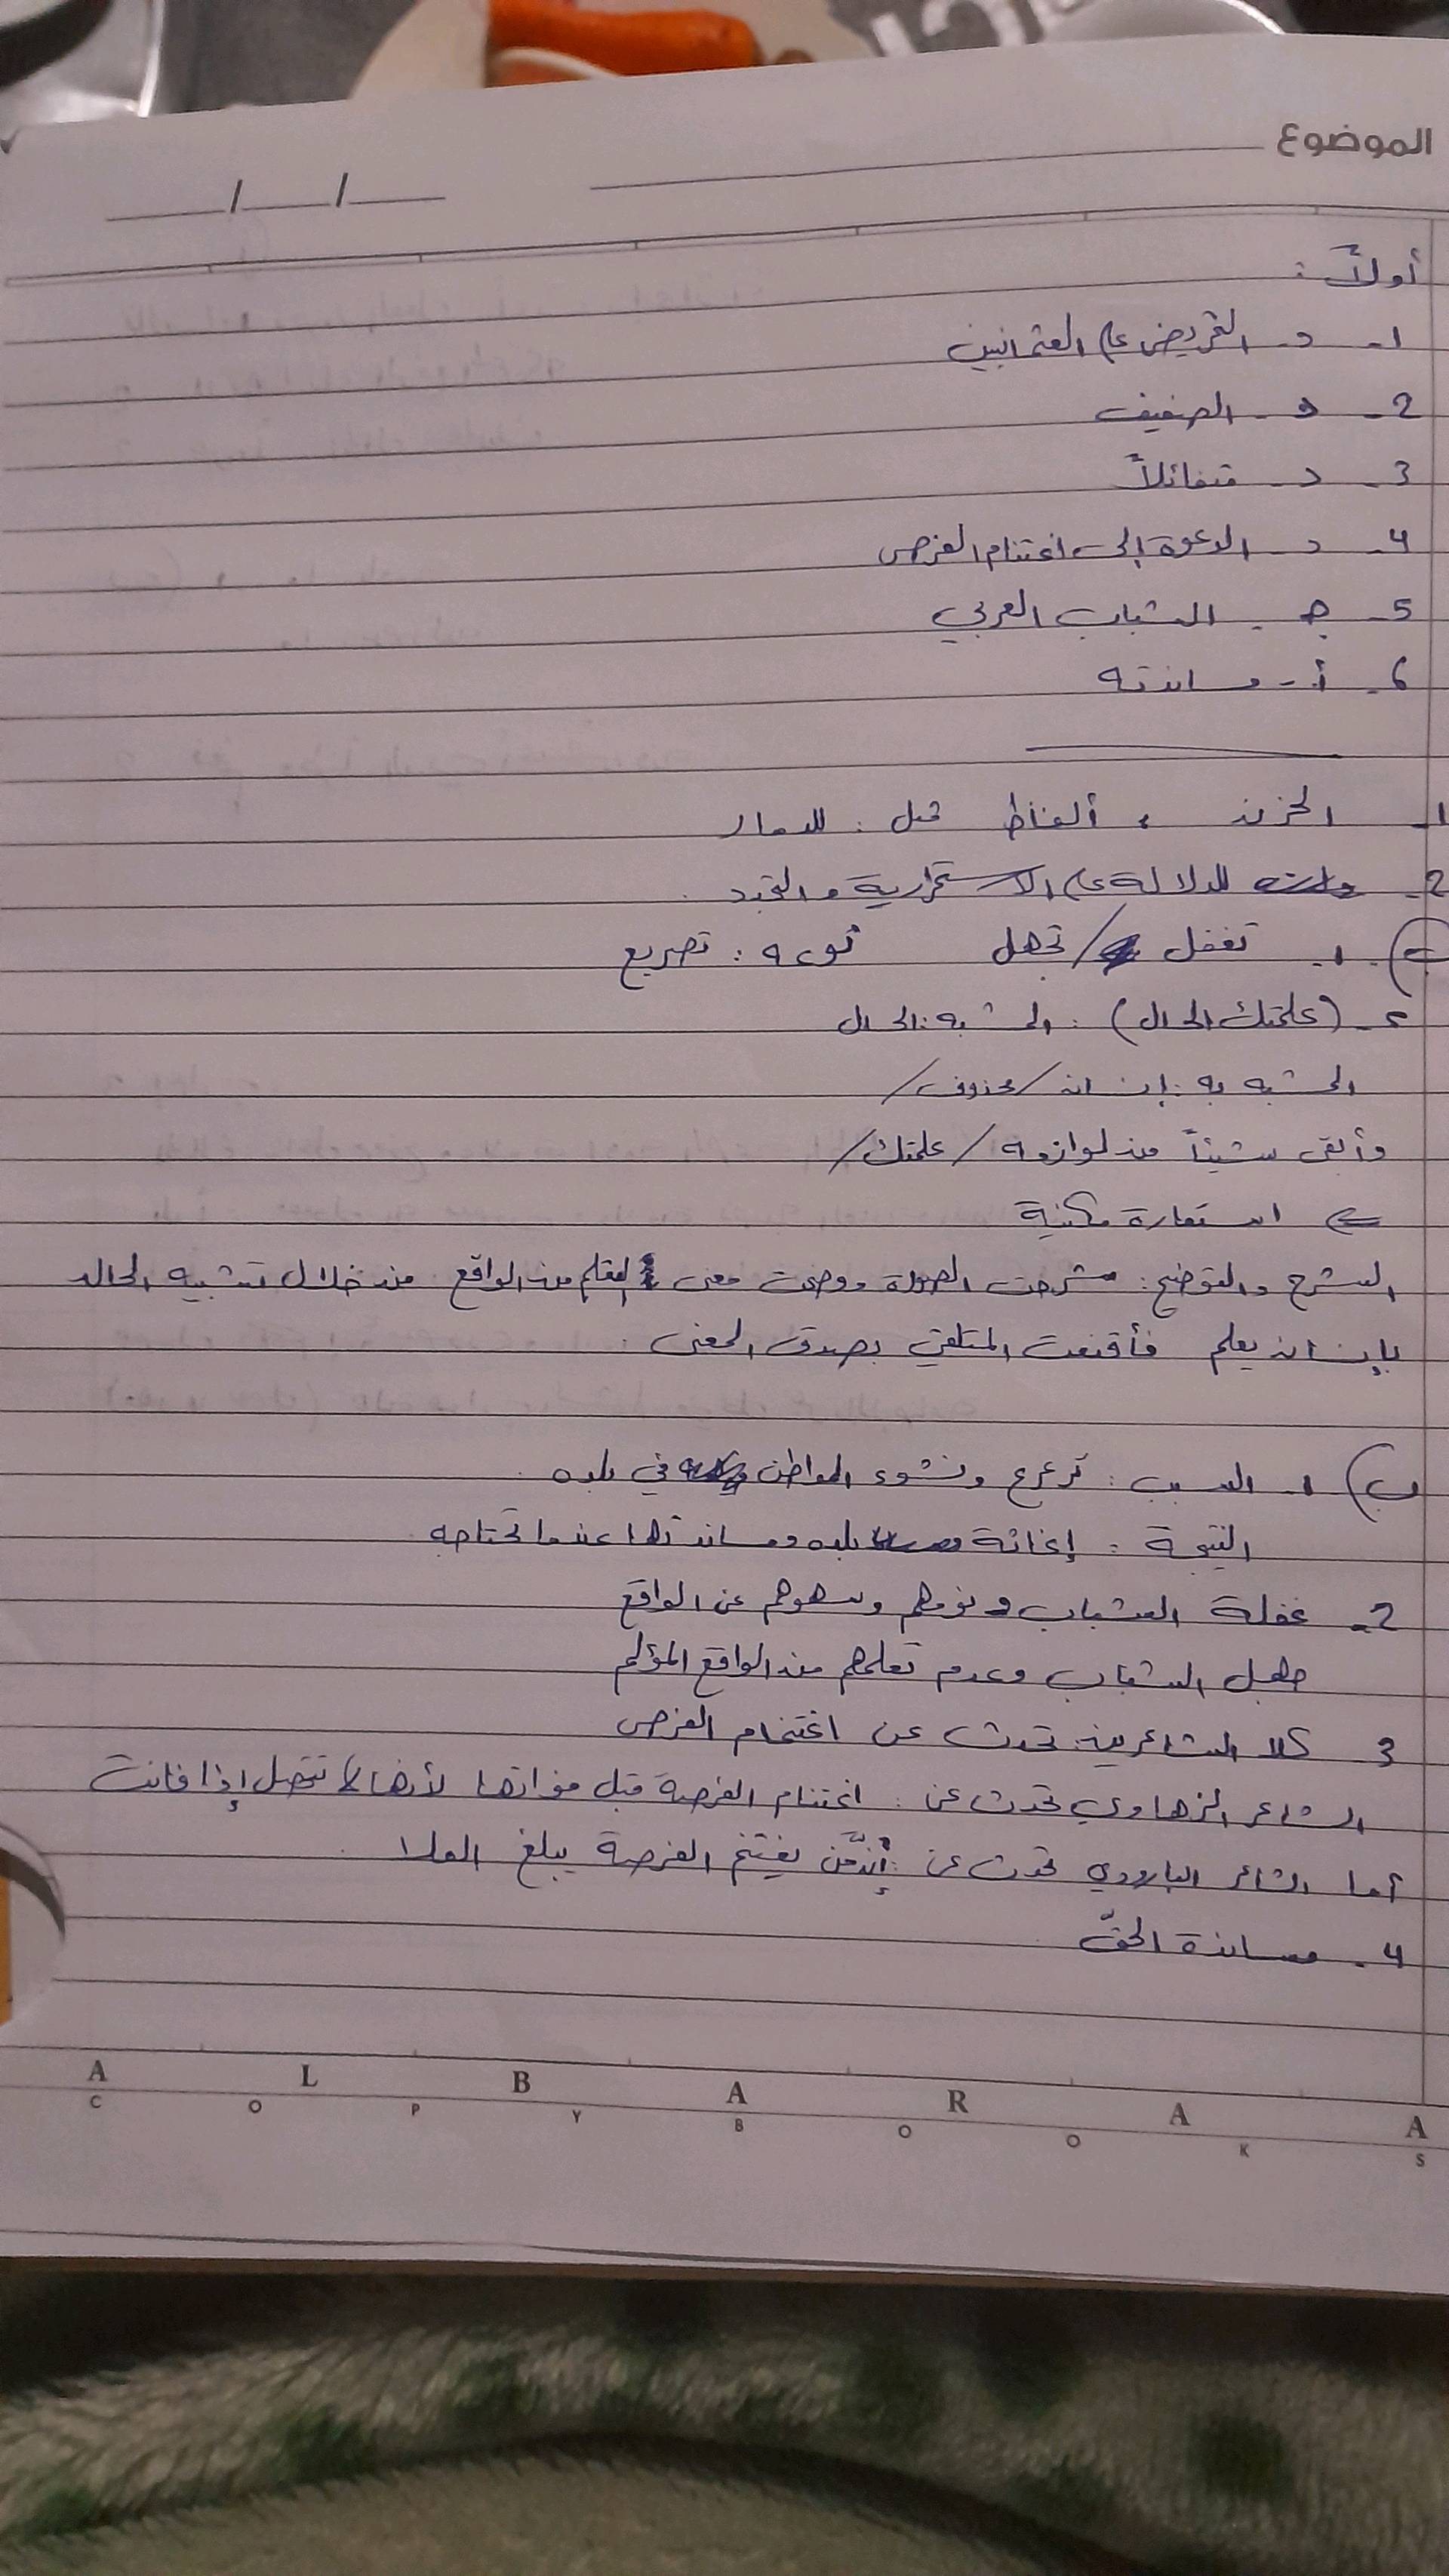 الموضوع
/ /
أولاً :
1- د- التحريض على العثمانيين
2- د- الضعيف
3- د- متفائلاً
4- د- الدعوة إلى اغتنام الفرص
5- جـ- الشباب العربي
6- أ- مساندته
1- الحزن ، ألفاظ مثل : للدمار
2- للدلالة على الاستمرارية والتجدد .
1- تغفل / تجهل نوعه : تصريع
2- (علمتك الحال) : المشبه : الحال
المشبه به : إنسان /محذوف/
وأبقى شيئاً من لوازمه /علمتك/
⇐ استعارة مكنية
الشرح والتوضيح : شرحت الصورة ووضحت معنى التعلم من الواقع من خلال تشبيه الحال
بإنسان يعلم فأقنعت المتلقي بصدق المعنى .
ب) 1- السبب : ترعرع ونشوء المواطن في بلده .
النتيجة : إغاثة بلده ومساندتها عندما تحتاجه
2- غفلة الشباب ونومهم وسهوهم عن الواقع
جهل الشباب وعدم تعلمهم من الواقع المؤلم
3 كلا الشاعرين تحدث عن اغتنام الفرص
الشاعر الزهاوي تحدث عن : اغتنام الفرصة قبل فواتها لأنها لا تتحصل إذا فاتت
أما الشاعر البارودي تحدث عن : إنَّ من يغتنم الفرصة يبلغ العلا .
4- مساندة الحقّ
A L B A R A A
C O P Y B O O K S